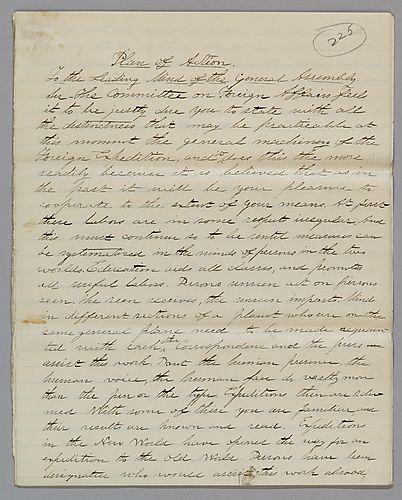 225
Plan of Action.
To the Leading Mind of the General Assembly
The Committee on Foreign Affairs feel
it to be justly due you to state with all
the distinctness that may be practicable at
this moment the general machinery of the
Foreign Expedition, and does this the more
readily because it is believed that as in
the past it will be your pleasure to
cooperate to the extent of your means. At first
these labors are in some respect irregular, and
this must continue so to be until measures can
be systematized in the minds of persons in the two
worlds. Education aids all classes, and promotes
all useful labors. Persons unseen act on persons
seen. The seen receives, the unseen imparts. Minds
in different sections of a planet who are on the
same general plane need to be made acquain
ted with each other. Correspondence and the press
assist this work. But the human presence the
human voice, the human face is vastly more
than the pen or the type. Expeditions then are
med. With some of these you are familiar, and
their results are known and read. Expeditions
in the New World have opened the way for an
expedition to the Old World. Persons have been
designated who would assist this work abroad,